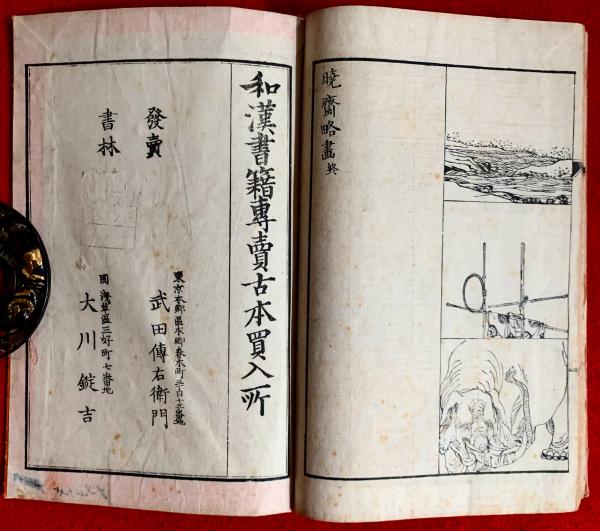 暁齋略畫 終
和漢書籍專賣古本買入所
發賣
書林
東京本郷區本郷春木町三百十三番地
武田傳右衛門
同淺草區三好町七番地
大川錠吉